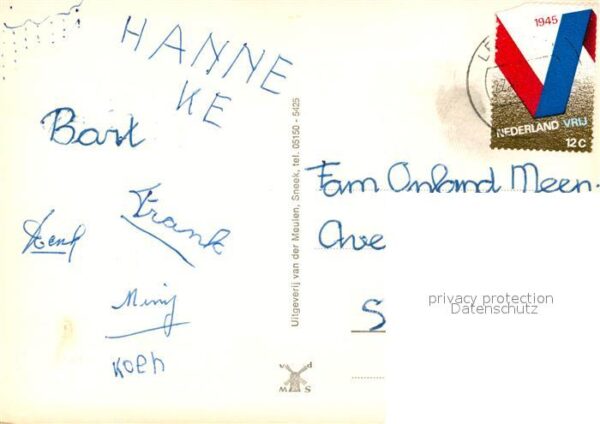 HANNE
KE
Bart
Frank
Henk
Miny
Koen
Uitgeverij van der Meulen, Sneek, tel. 05150 - 5425
v d
M S
1945
NEDERLAND VRIJ
12c
Fam Onland Meen.
Ave
S
privacy protection
Datenschutz